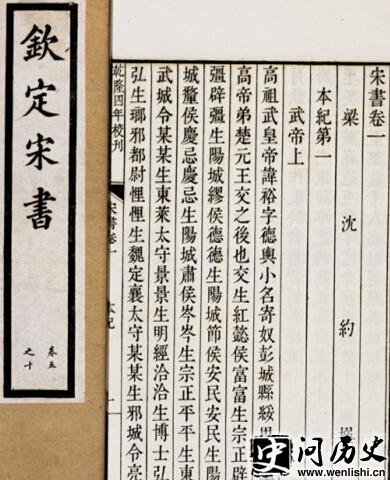 欽定宋書
卷五
之十
宋書卷一
梁沈約
本紀第一
武帝上
高祖武皇帝諱裕字德輿小名寄奴彭城縣綏
高帝弟楚元王交之後也交生紅懿侯富富生宗正辟
彊辟彊生陽城繆侯德德生陽城節侯安民安民生陽
城釐侯慶忌慶忌生陽城肅侯岑岑生宗正平平生東
武城令某某生東萊太守景景生明經洽洽生博士弘
弘生瑯邪都尉悝悝生魏定襄太守某某生邪城令亮
乾隆四年校刊
宋書卷一
本紀
一
问历史
www.wenlishi.cn